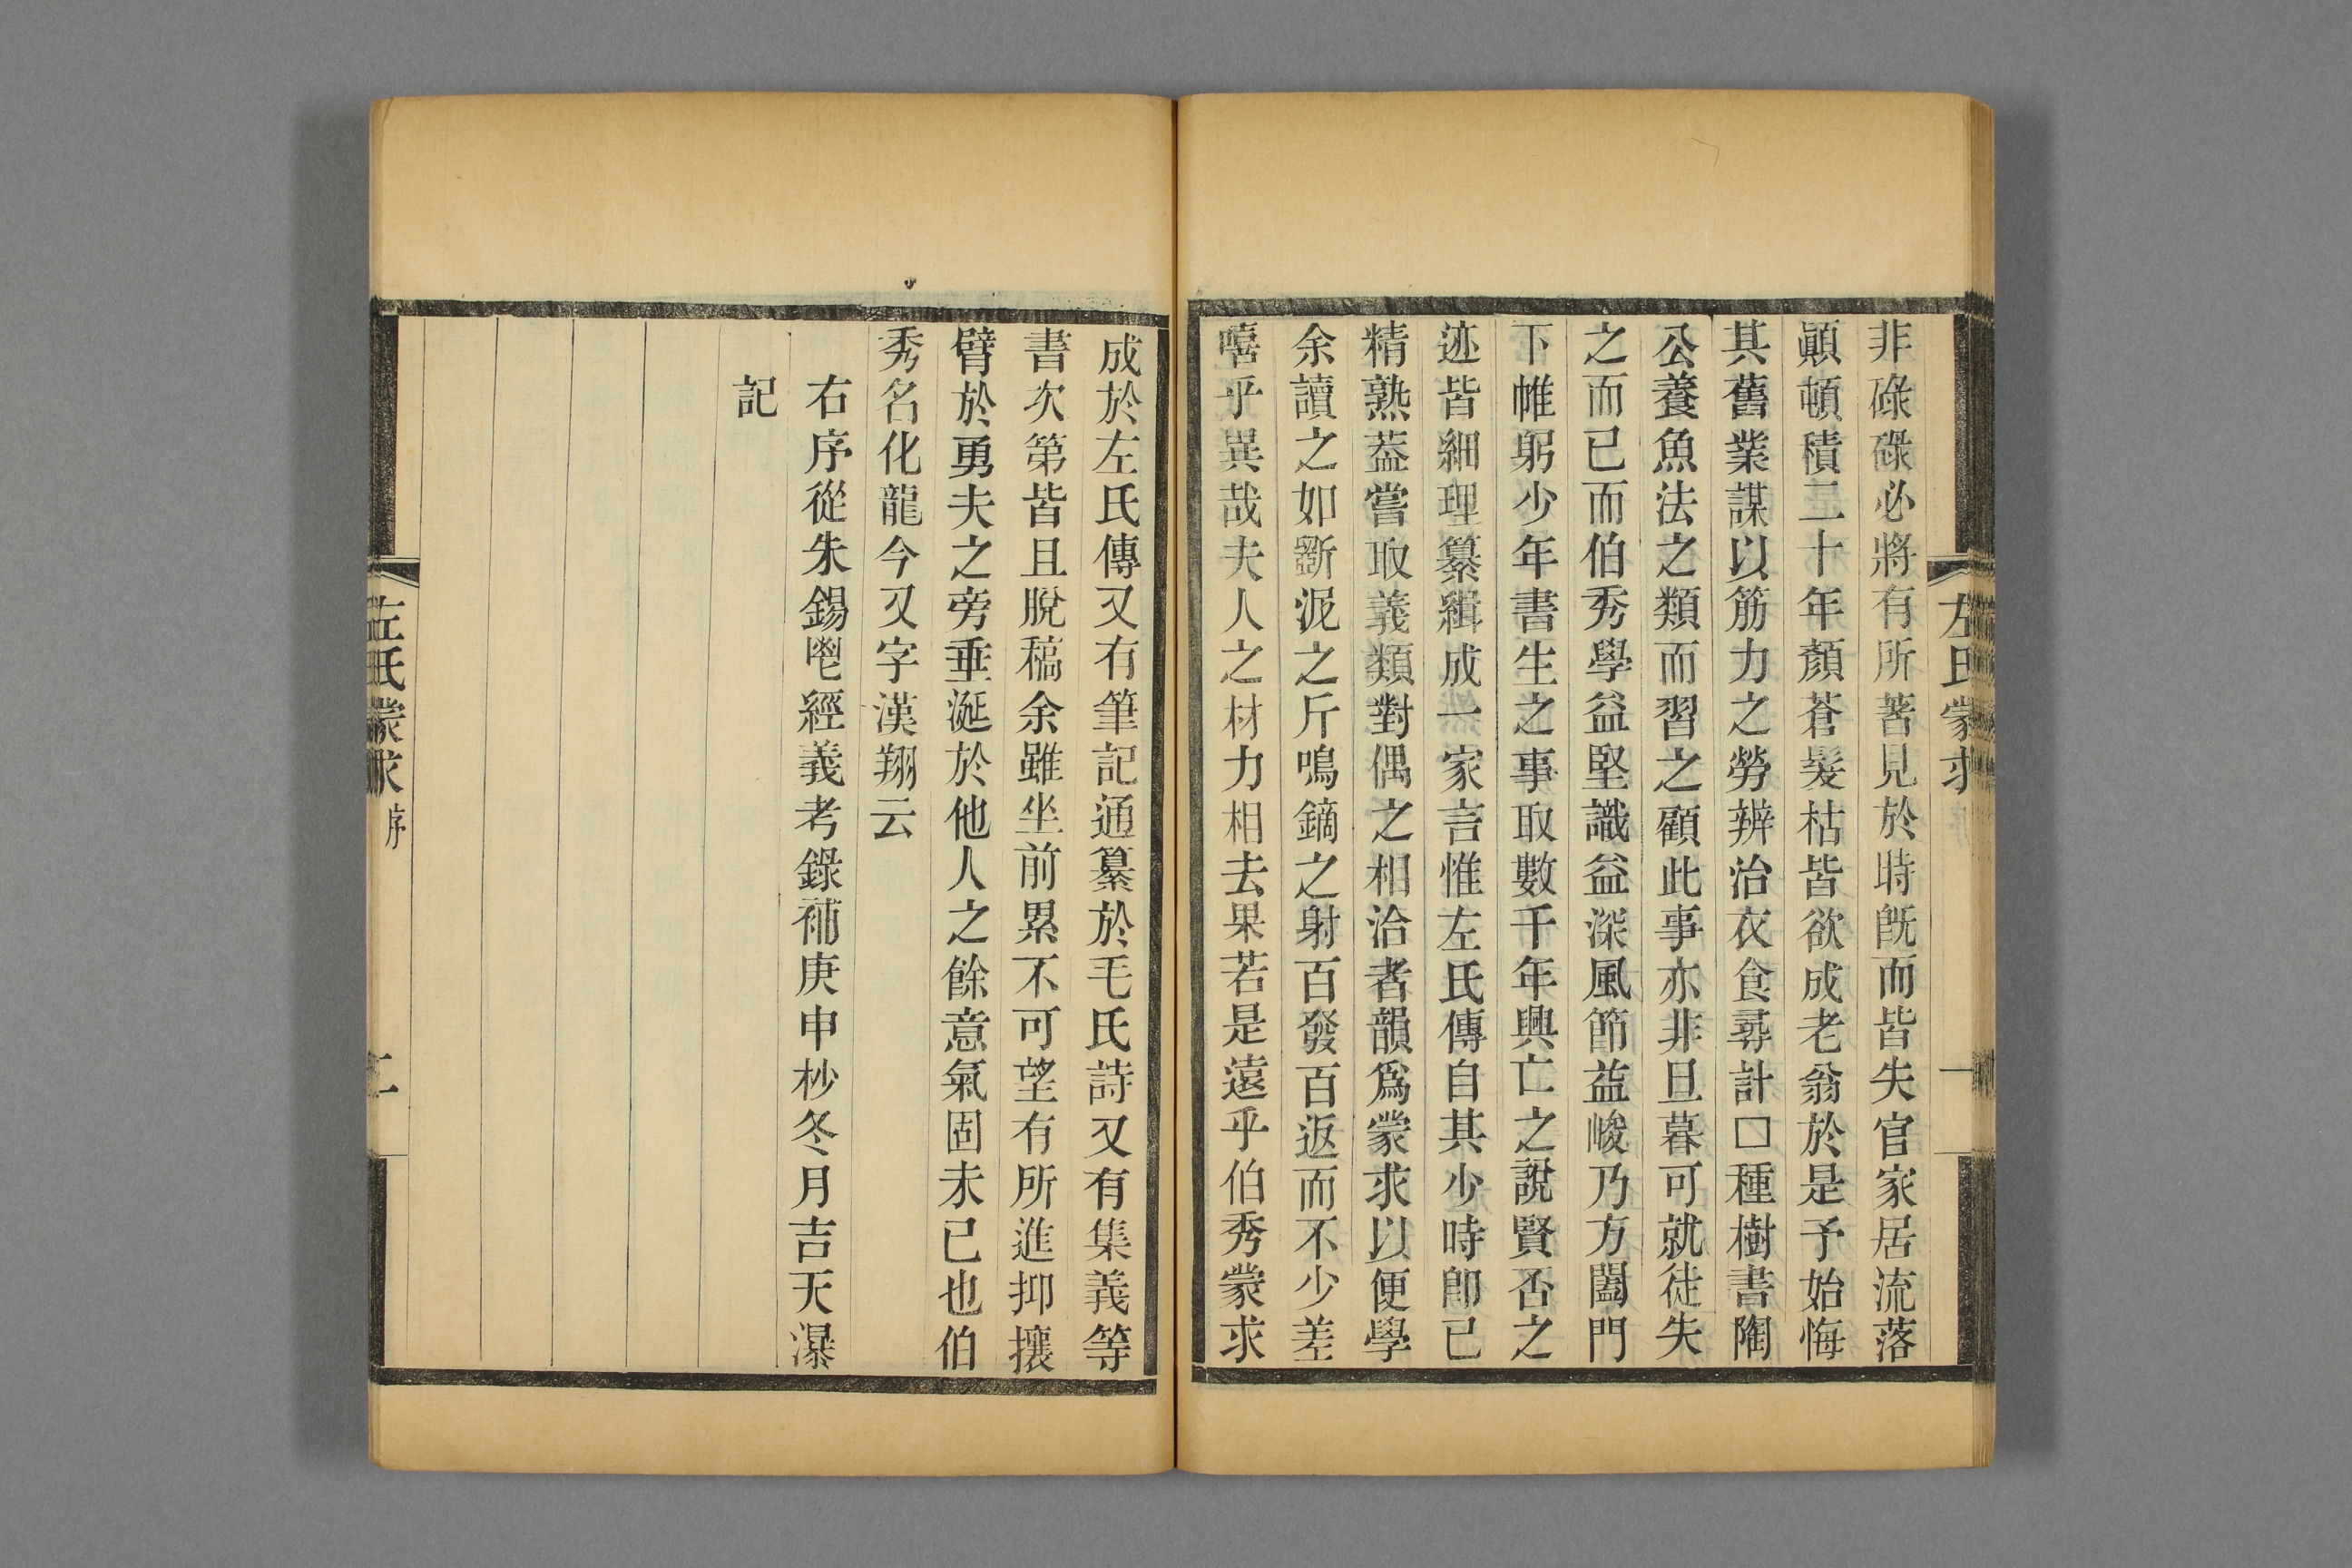 左氏蒙求
一
非碌碌必將有所著見於時旣而皆失官家居流落
顚頓積二十年顏蒼髮枯皆欲成老翁於是予始悔
其舊業謀以筋力之勞辨治衣食尋計□種樹書陶
公養魚法之類而習之顧此事亦非旦暮可就徒失
之而已而伯秀學益堅識益深風節益峻乃方闔門
下帷躬少年書生之事取數千年興亡之說賢否之
迹皆細理纂緝成一家言惟左氏傳自其少時卽已
精熟葢嘗取義類對偶之相洽者韻爲蒙求以便學
余讀之如斵泥之斤鳴鏑之射百發百返而不少差
嘻乎異哉夫人之材力相去果若是遠乎伯秀蒙求
成於左氏傳又有筆記通纂於毛氏詩又有集義等
書次第皆且脫稿余雖坐前累不可望有所進抑攘
臂於勇夫之旁垂涎於他人之餘意氣固未已也伯
秀名化龍今又字漢翔云
右序從朱錫鬯經義考錄補庚申杪冬月吉天瀑
記
左氏蒙求
序
二